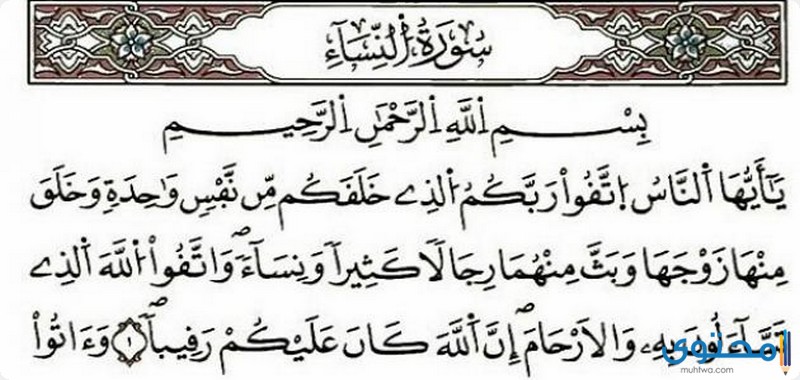 سُورَةُ اُ۬لنِّسَآءِ
بِسْمِ اِ۬للَّهِ اِ۬لرَّحْمَٰنِ اِ۬لرَّحِيمِ
يَٰٓأَيُّهَا اَ۬لنَّاسُ اُ۪تَّقُواْ رَبَّكُمُ اُ۬لذِے خَلَقَكُم مِّن نَّفْسٖ وَٰحِدَةٖ وَخَلَقَ
مِنْهَا زَوْجَهَا وَبَثَّ مِنْهُمَا رِجَالٗا كَثِيراٗ وَنِسَآءٗۖ وَاتَّقُواْ اُ۬للَّهَ اَ۬لذِے
تَسَّآءَلُونَ بِهِۦ وَالَارْحَامَۖ إِنَّ اَ۬للَّهَ كَانَ عَلَيْكُمْ رَقِيباٗۖ ١ وَءَاتُواْ
محتوى
muhtwa.com